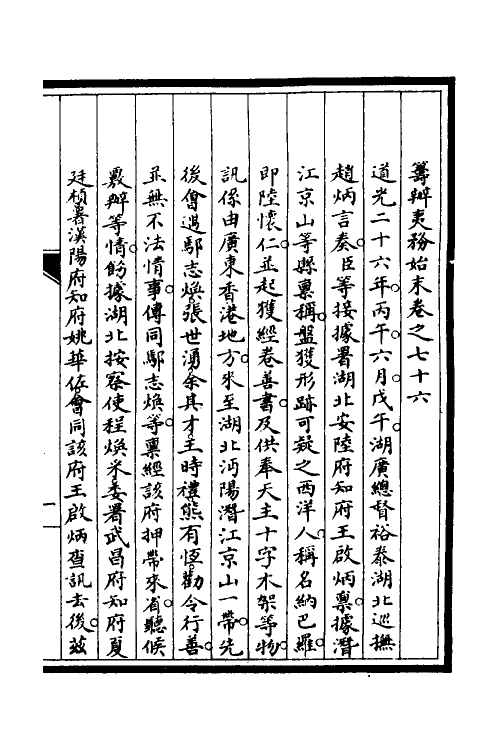 籌辦夷務始末卷之七十六
道光二十六年丙午六月戊午湖廣總督裕泰湖北巡撫
趙炳言奏臣等接據署湖北安陸府知府王啟炳稟據潛
江京山等縣稟稱盤獲形跡可疑之西洋人稱名納巴羅
即陸懷仁並起獲經卷善書及供奉天主十字木架等物
訊係由廣東香港地方來至湖北沔陽潛江京山一帶先
後會遇鄢志煥張世湧余其才王時禮熊有恆勸令行善
並無不法情事傳同鄢志煥等稟經該府押帶來省聽候
覈辦等情飭據湖北按察使程煥采委署武昌府知府夏
廷楨署漢陽府知府姚華佐會同該府王啟炳查訊去後茲